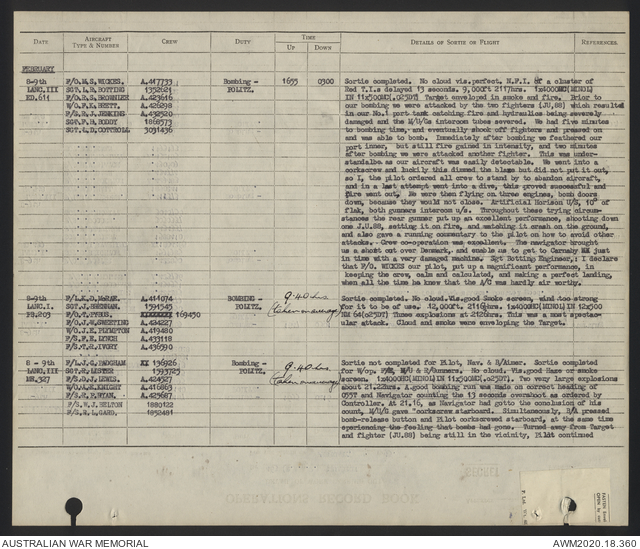 DATE AIRCRAFT TYPE & NUMBER CREW DUTY TIME UP DOWN DETAILS OF SORTIE OR FLIGHT REFERENCES
FEBRUARY
8-9th F/O.M.S.WICKES. A.417733 Bombing - 1655 0300 Sortie completed. No cloud vis.perfect. N.F.I. of a cluster of
LANC.III SGT.L.B.BOTTING 1352621 POLITZ. Red T.I.s delayed 13 seconds. 9,000ft 2117hrs. 1x4000HC(MINOL)
ED.611 A.423616 IN 11x500MC(.025DT) Target enveloped in smoke and fire. Prior to
W/O.F.K.BRETT. A.426298 our bombing we were attacked by the two fighters (JU.88) which resulted
F/S.R.J.JENKINS A.432520 in our No.1 port tank catching fire and hydraulics being severely
SGT.F.H.BODDY 1869573 damaged and the M/U/Gs intercom tubes severed. We had five minutes
SGT.L.D.COTTROLL 3031436 to bombing time, and eventually shook off fighters and pressed on
and was able to bomb. Immediately after bombing we feathered our
port inner, but still fire gained in intensity, and two minutes
after bombing we were attacked another fighter. This was under-
standalbe as our aircraft was easily detectable. We went into a
corkscrew and luckily this dimmed the blaze but did not put it out,
so I, the pilot ordered all crew to stand by to abandon aircraft,
and in a last attempt went into a dive, this proved successful and
fire went out, We were then flying on three engines, bomb doors
down, because they would not close. Artificial Horison U/S, 10° of
flak, both gunners intercom u/s. Throughout these trying circum-
stances the rear gunner put up an excellent performance, shooting down
one J.U.88, setting it on fire, and watching it crash on the ground,
and also gave a running commentary to the pilot on how to avoid other
attacks. Crew co-operation was excellent. The navigator brought
us a short cut over Denmark, and enable us to get to Carnaby just
in time with a very damaged machine. Sgt Botting Engineer,: I declare
that F/O. WICKES our pilot, put up a magnificent performance, in
keeping the crew, calm and calculated, and making a perfect landing,
when all the time he knew that the A/C was hardly air worthy.
8-9th A.414074 BOMBING - 9.40 hrs Sortie completed. No cloud. Vis.good Smoke screen, wind too strong
LANC.I. 1594545 POLITZ. for it to be of use. 12,000ft. 2116½hrs. 1x4000HC(MINOL) IN 12x500
PB.203 169450 MC 64(o25DT) Three explosions at 2126hrs. This was a most spectac-
W/O.J.W.SWEETING A.424227 ular attack. Cloud and smoke were enveloping the Target.
W/O.J.K.PLYMPTON A.419483
F/S.F.N.LYNCH A.433118
F/S.T.R.IVORY A.436590
8 - 9th F/L.J.C.PADGHAM 136926 Bombing- 9.40 hrs Sortie not completed for Pilot, Nav. & B/Aimer. Sortie completed
LANC.III SGT.R.LESTER 1393725 POLITZ. for W/op. M/G & R/Gunners. No cloud. Vis.good Haze or smoke
F/S.D.J.LEWIS. A.424527 screen. 1x4000HC(MINOL)IN 11x500MC.(.025DT). Two very large explosions
W/O.A.E.KNIGHT A.416863 about 21.22hrs. A good bombing run was made on correct heading of
F/S.R.P.RYAN. A.423687 057T and Navigator counting the 13 seconds overshoot as ordered by
F/S.W.J.HELTON 1880122 Controller. At 21.16, as Navigator had gotto the conclusion of his
F/S.R.L.GARD. 1852481 count, M/U/G gave "corkscrew starboard. Simultaneously, B/A pressed
bomb-release button and Pilot corkscrewed starboard, at the same time
xperiencing the feeling that bombs had gone. Turned away from Target
and fighter (JU.88) being still in the vicinity, Pilot continued
AUSTRALIAN WAR MEMORIAL
AWM2020.18.360